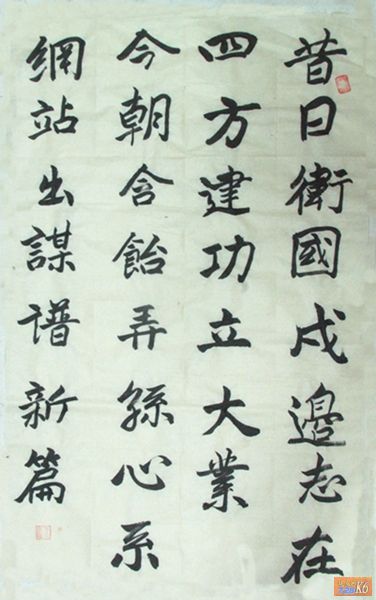 昔日衛國戍邊志在
四方建功立大業
今朝含飴弄孫心系
網站出謀譜新篇
K6